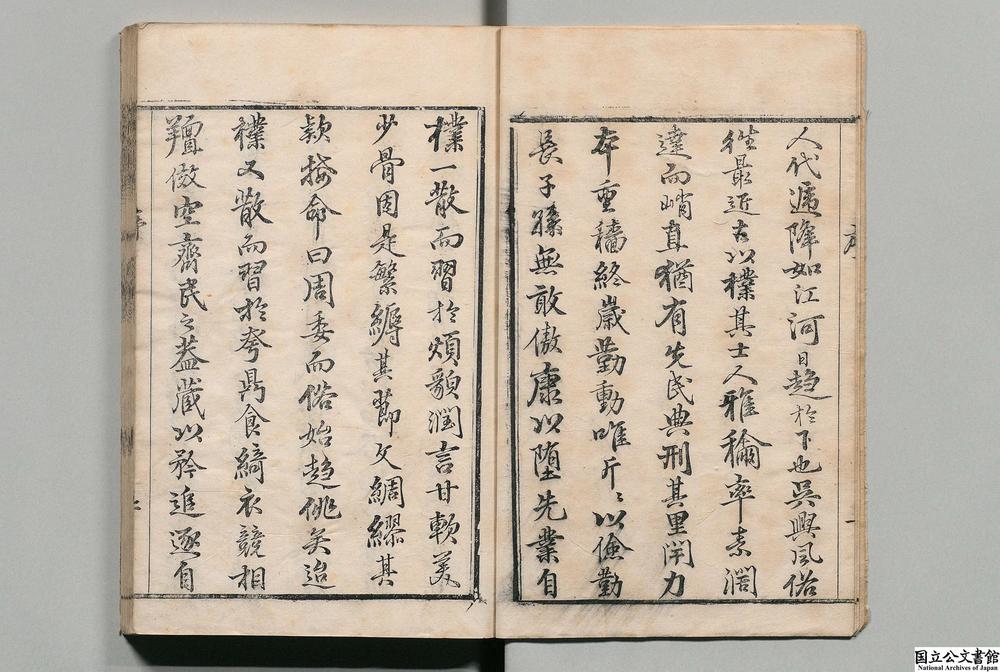 序
人代遞降如江河日趨於下也吳興風俗
徃最近古以樸其士人雅稱率素濶
達而峭直猶有先民典刑其里閈力
本重穡終歲勤動唯斤〻以儉勤
長子孫無敢傲康以墮先業自
樸一散而習於煩貌澗言甘軟美
少骨因是繁縟其節文綢繆其
欵接命曰周委而俗始趨佻矣迨
樸又散而習於奓鼎食綺衣競相
倣空齊民之葢藏以矜追逐自
序
一
國立公文書館
National Archives of Japan